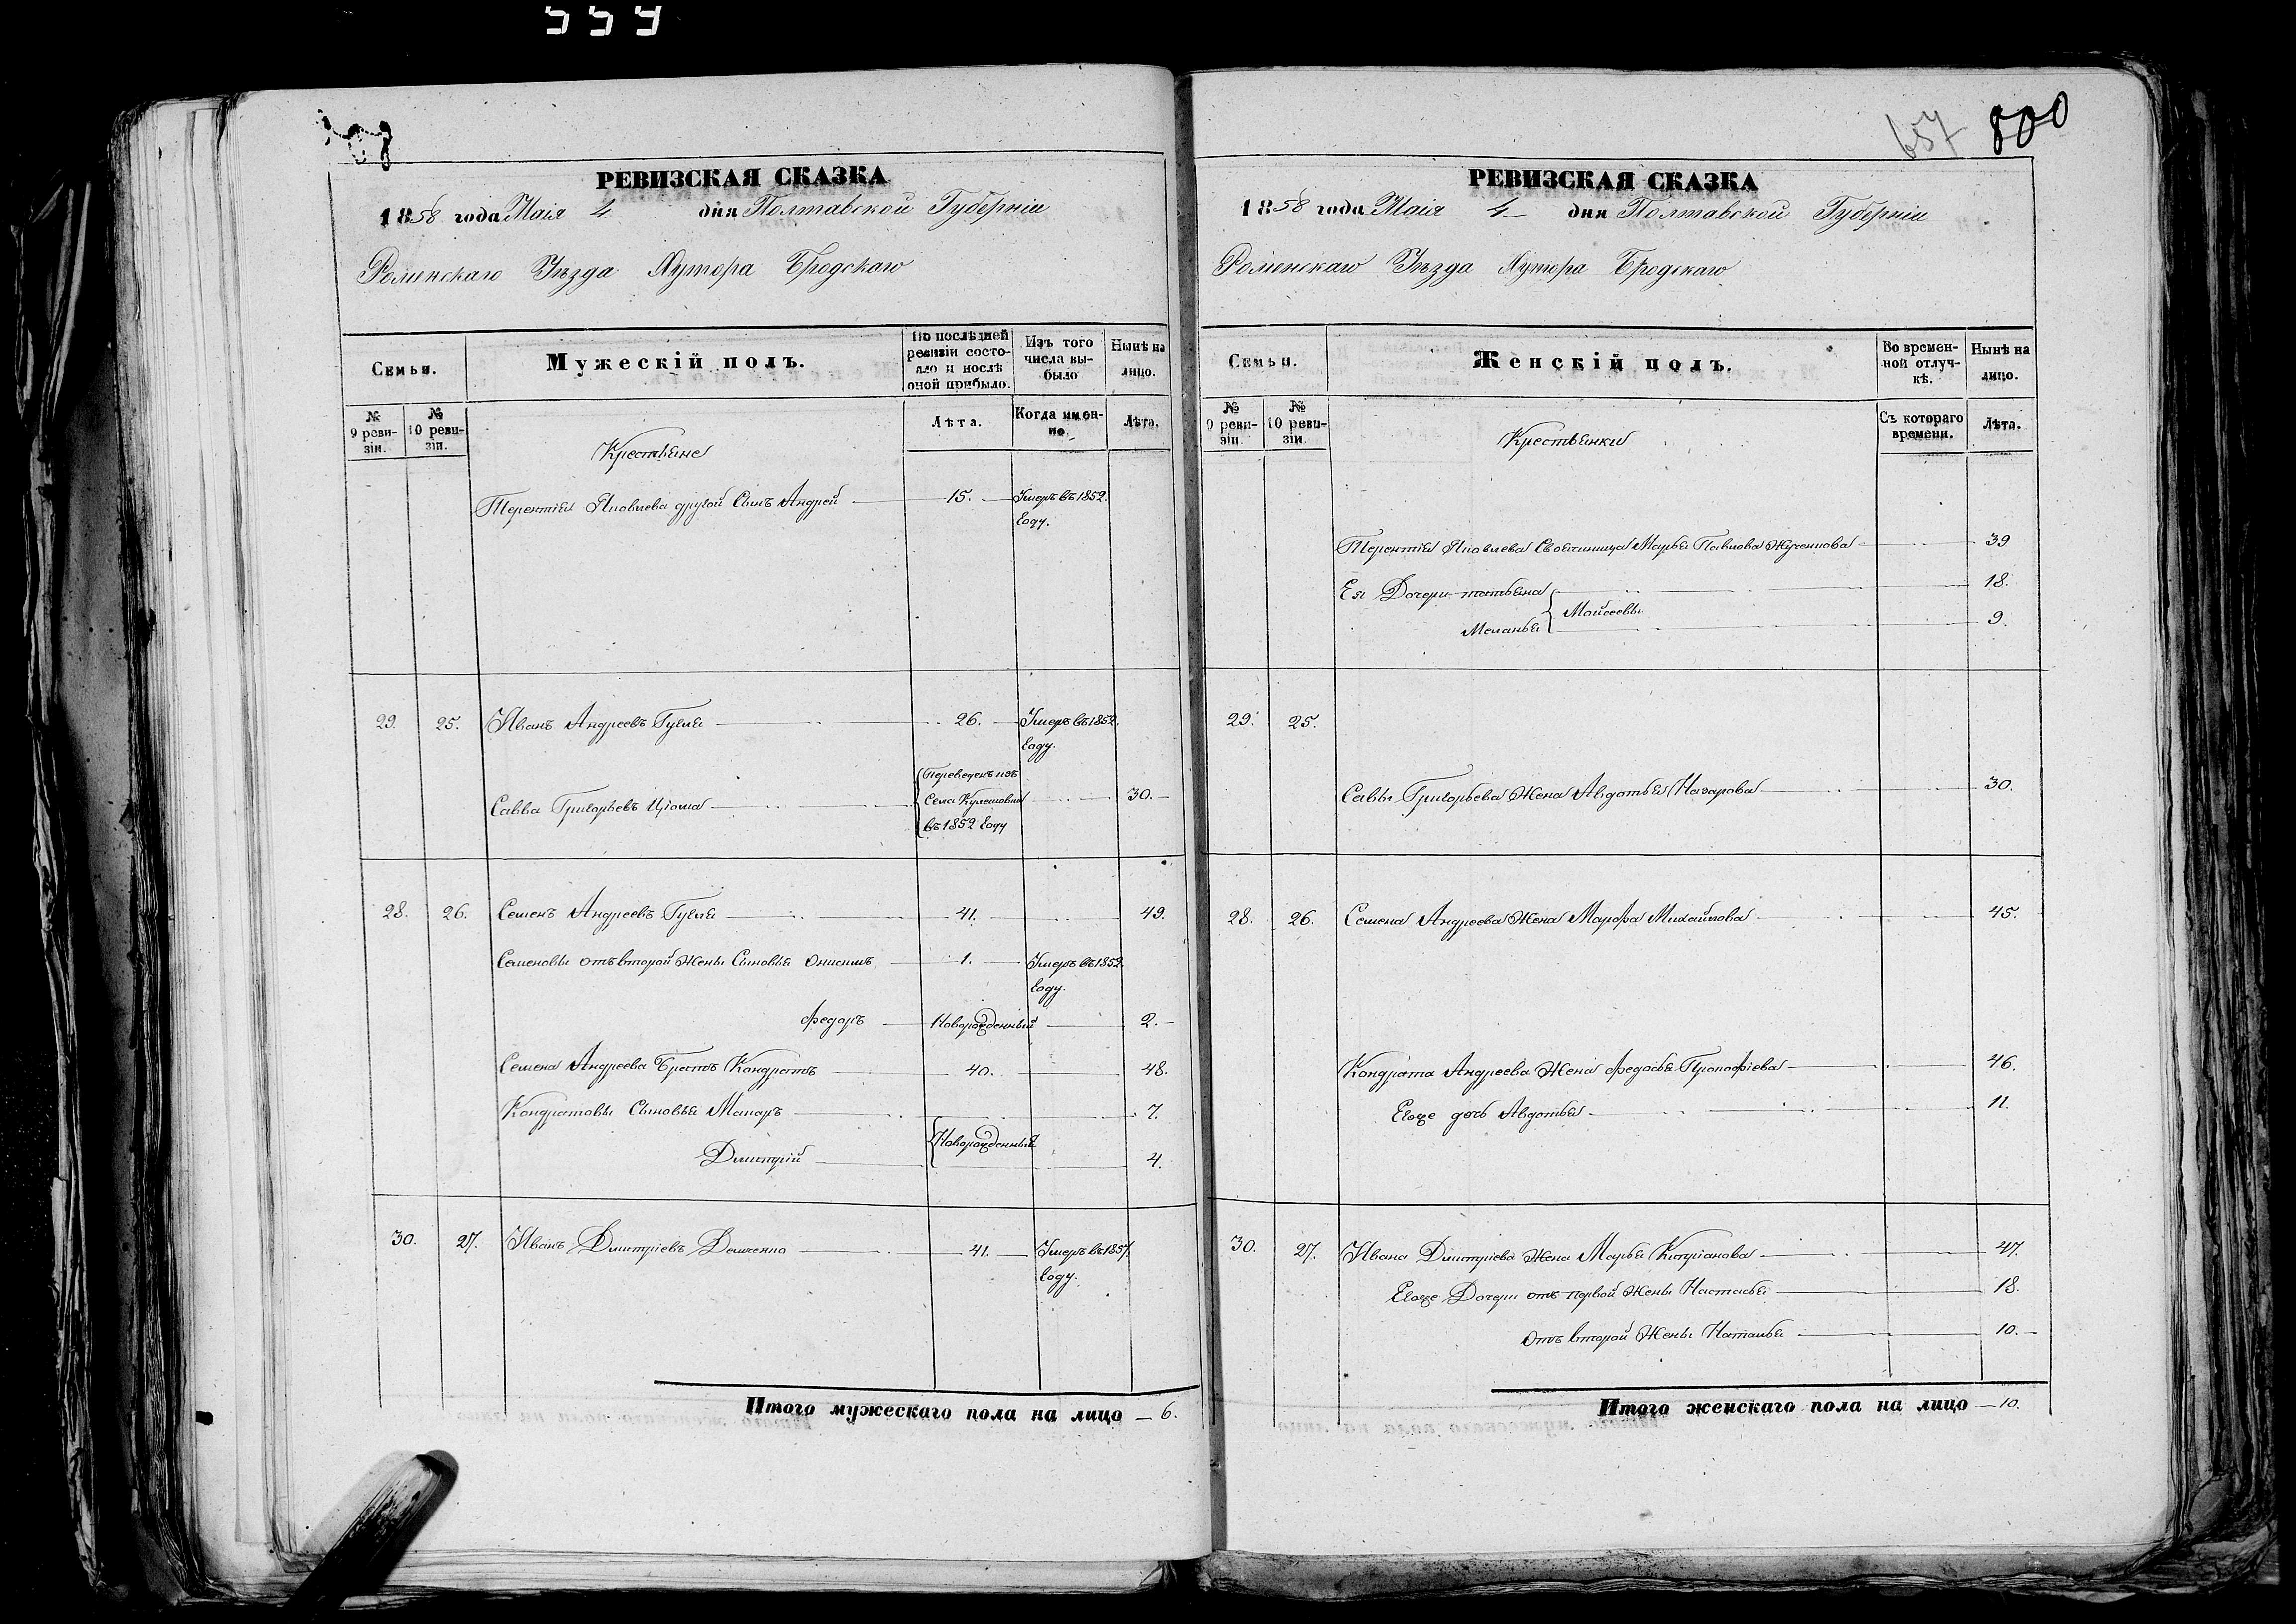 559
РЕВИЗСКАЯ СКАЗКА
1858 года Маія 4 дня Полтавской Губерніи
Роменскаго Уѣзда Хутора Бродскаго
Семьи.
Мужескій полъ.
Въ послѣдней ревизіи состояло и послѣ оной прибыло.
Изъ того числа выбыло
Нынѣ на лицо.
№ 9 ревизіи.
№ 10 ревизіи.
Лѣта.
Когда именно.
Лѣта.
Крестьяне
Терентія Яковлева другой Сынъ Андрей 15. Умеръ въ 1852.
году.
29. 25. Иванъ Андреевъ Гугля 26. Умеръ въ 1852.
году.
Переведенъ изъ
Савва Григорьевъ Села Кулешовки 30.
въ 1852 году
28. 26. Семенъ Андреевъ Гугля 41. 49.
Семеновы отъ второй жены Сыновья Онисимъ 1. Умеръ въ 1852.
году.
Федоръ Новорожденный 2.
Семена Андреева Братъ Кондратъ 40. 48.
Кондратовы Сыновья Макаръ 7.
Новорожденные
Дмитрій 4.
30. 27. Иванъ Дмитріевъ 41. Умеръ въ 1857.
году.
Итого мужескаго пола на лицо 6.
657 800
РЕВИЗСКАЯ СКАЗКА
1858 года Маія 4 дня Полтавской Губерніи
Роменскаго Уѣзда Хутора Бродскаго
Семьи.
Женскій полъ.
Во временной отлучкѣ.
Нынѣ на лицо.
№ 9 ревизіи.
№ 10 ревизіи.
Съ котораго времени.
Лѣта.
Крестьянки
Терентія Яковлева Своячиница Марья Павлова 39
Ея Дочери татьяна 18.
Моисеевы
Меланья 9.
29. 25.
Саввы Григорьева Жена Авдотья Назарова 30.
28. 26. Семена Андреева Жена Марфа Михайлова 45.
Кондрата Андреева Жена Федосья Прокофіева 46.
Егоже дочь Авдотья 11.
30. 27. Ивана Дмитріева Жена Марья Кипріанова 47.
Егоже Дочери отъ первой Жены Настасья 18.
отъ второй Жены Наталья 10.
Итого женскаго пола на лицо 10.